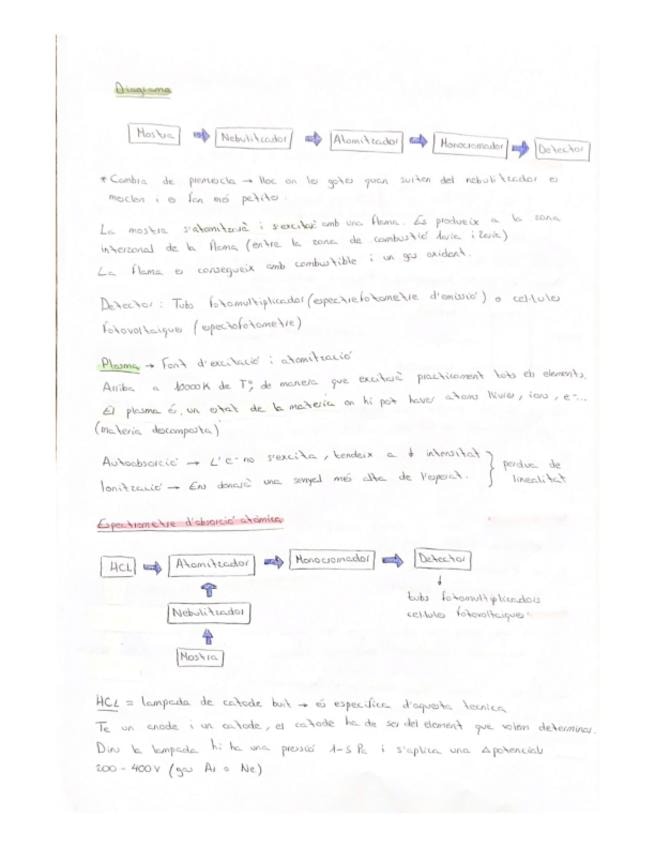 Diagrama
Mostra → Nebulitzador → Atomitzador → Monocromador → Detector
* Cambra de premescla → lloc on les gotes quan surten del nebulitzador es
mesclen i es fan més petites.
La mostra s'atomitzarà i s'excitarà amb una flama. Es produeix a la zona
interzonal de la flama (entre la zona de combustió 1aria i 2aria)
La flama es consegueix amb combustible i un gas oxidant.
Detector: Tubs fotomultiplicador (espectrefotometre d'emissió) o cel·lules
fotovoltaiques (espectofotometre)
Plasma → Font d'excitació i atomització
Arriba a 10000K de Tª, de manera que excitarà practicament tots els elements.
El plasma és un estat de la matèria on hi pot haver atoms lliures, ions, e⁻...
(matèria descomposta)
Autoabsorció → L'e⁻ no s'excita, tendeix a ↓ intensitat } perdua de
Ionització → Ens donarà una senyal més alta de l'esperat. } linealitat
Espectrometre d'absorció atòmica
HCL → Atomitzador → Monocromador → Detector
↑ ↓
Nebulitzador tubs fotomultiplicadors
cel·lules fotovoltaiques
↑
Mostra
HCL = lampada de catode buit → és especifica d'aquesta tecnica
Te un anode i un catode, el catode ha de ser del element que volem determinar.
Dins la lampada hi ha una pressió 1-5 Pa i s'aplica una Δpotencial
200 - 400 V (gas Ar o Ne)